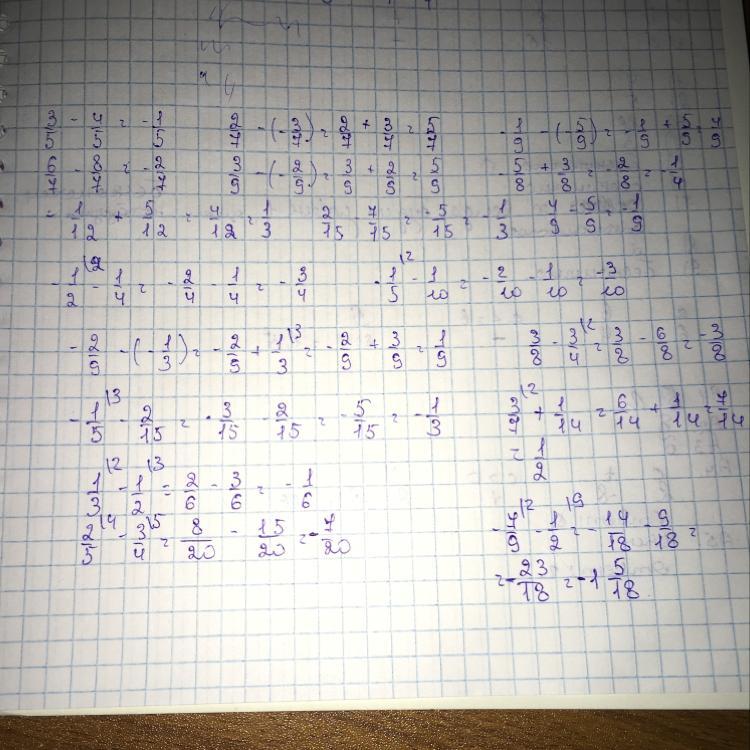 3/5 - 4/5 = -1/5    2/7 - (-3/7) = 2/7 + 3/7 = 5/7    -1/9 - (-5/9) = -1/9 + 5/9 = 4/9
3/9 - (-2/9) = 3/9 + 2/9 = 5/9    -5/8 + 3/8 = -2/8 = -1/4
-1/12 + 5/12 = 4/12 = 1/3    2/15 - 7/15 = -5/15 = -1/3    4/9 - 5/9 = -1/9
-1/2\2 - 1/4 = -2/4 - 1/4 = -3/4    -1/5\2 - 1/10 = -2/10 - 1/10 = -3/10
-2/9 - (-1/3) = -2/9 + 1/3\3 = -2/9 + 3/9 = 1/9    3/8 - 3/4\2 = 3/8 - 6/8 = -3/8
-1/5\3 - 2/15 = -3/15 - 2/15 = -5/15 = -1/3    3/7\2 + 1/14 = 6/14 + 1/14 = 7/14
= 1/2
1/3\2 - 1/2\3 = 2/6 - 3/6 = -1/6
2/5\4 - 3/4\5 = 8/20 - 15/20 = -7/20    -7/9\2 - 1/2\9 = -14/18 - 9/18 =
= -23/18 = -1 5/18